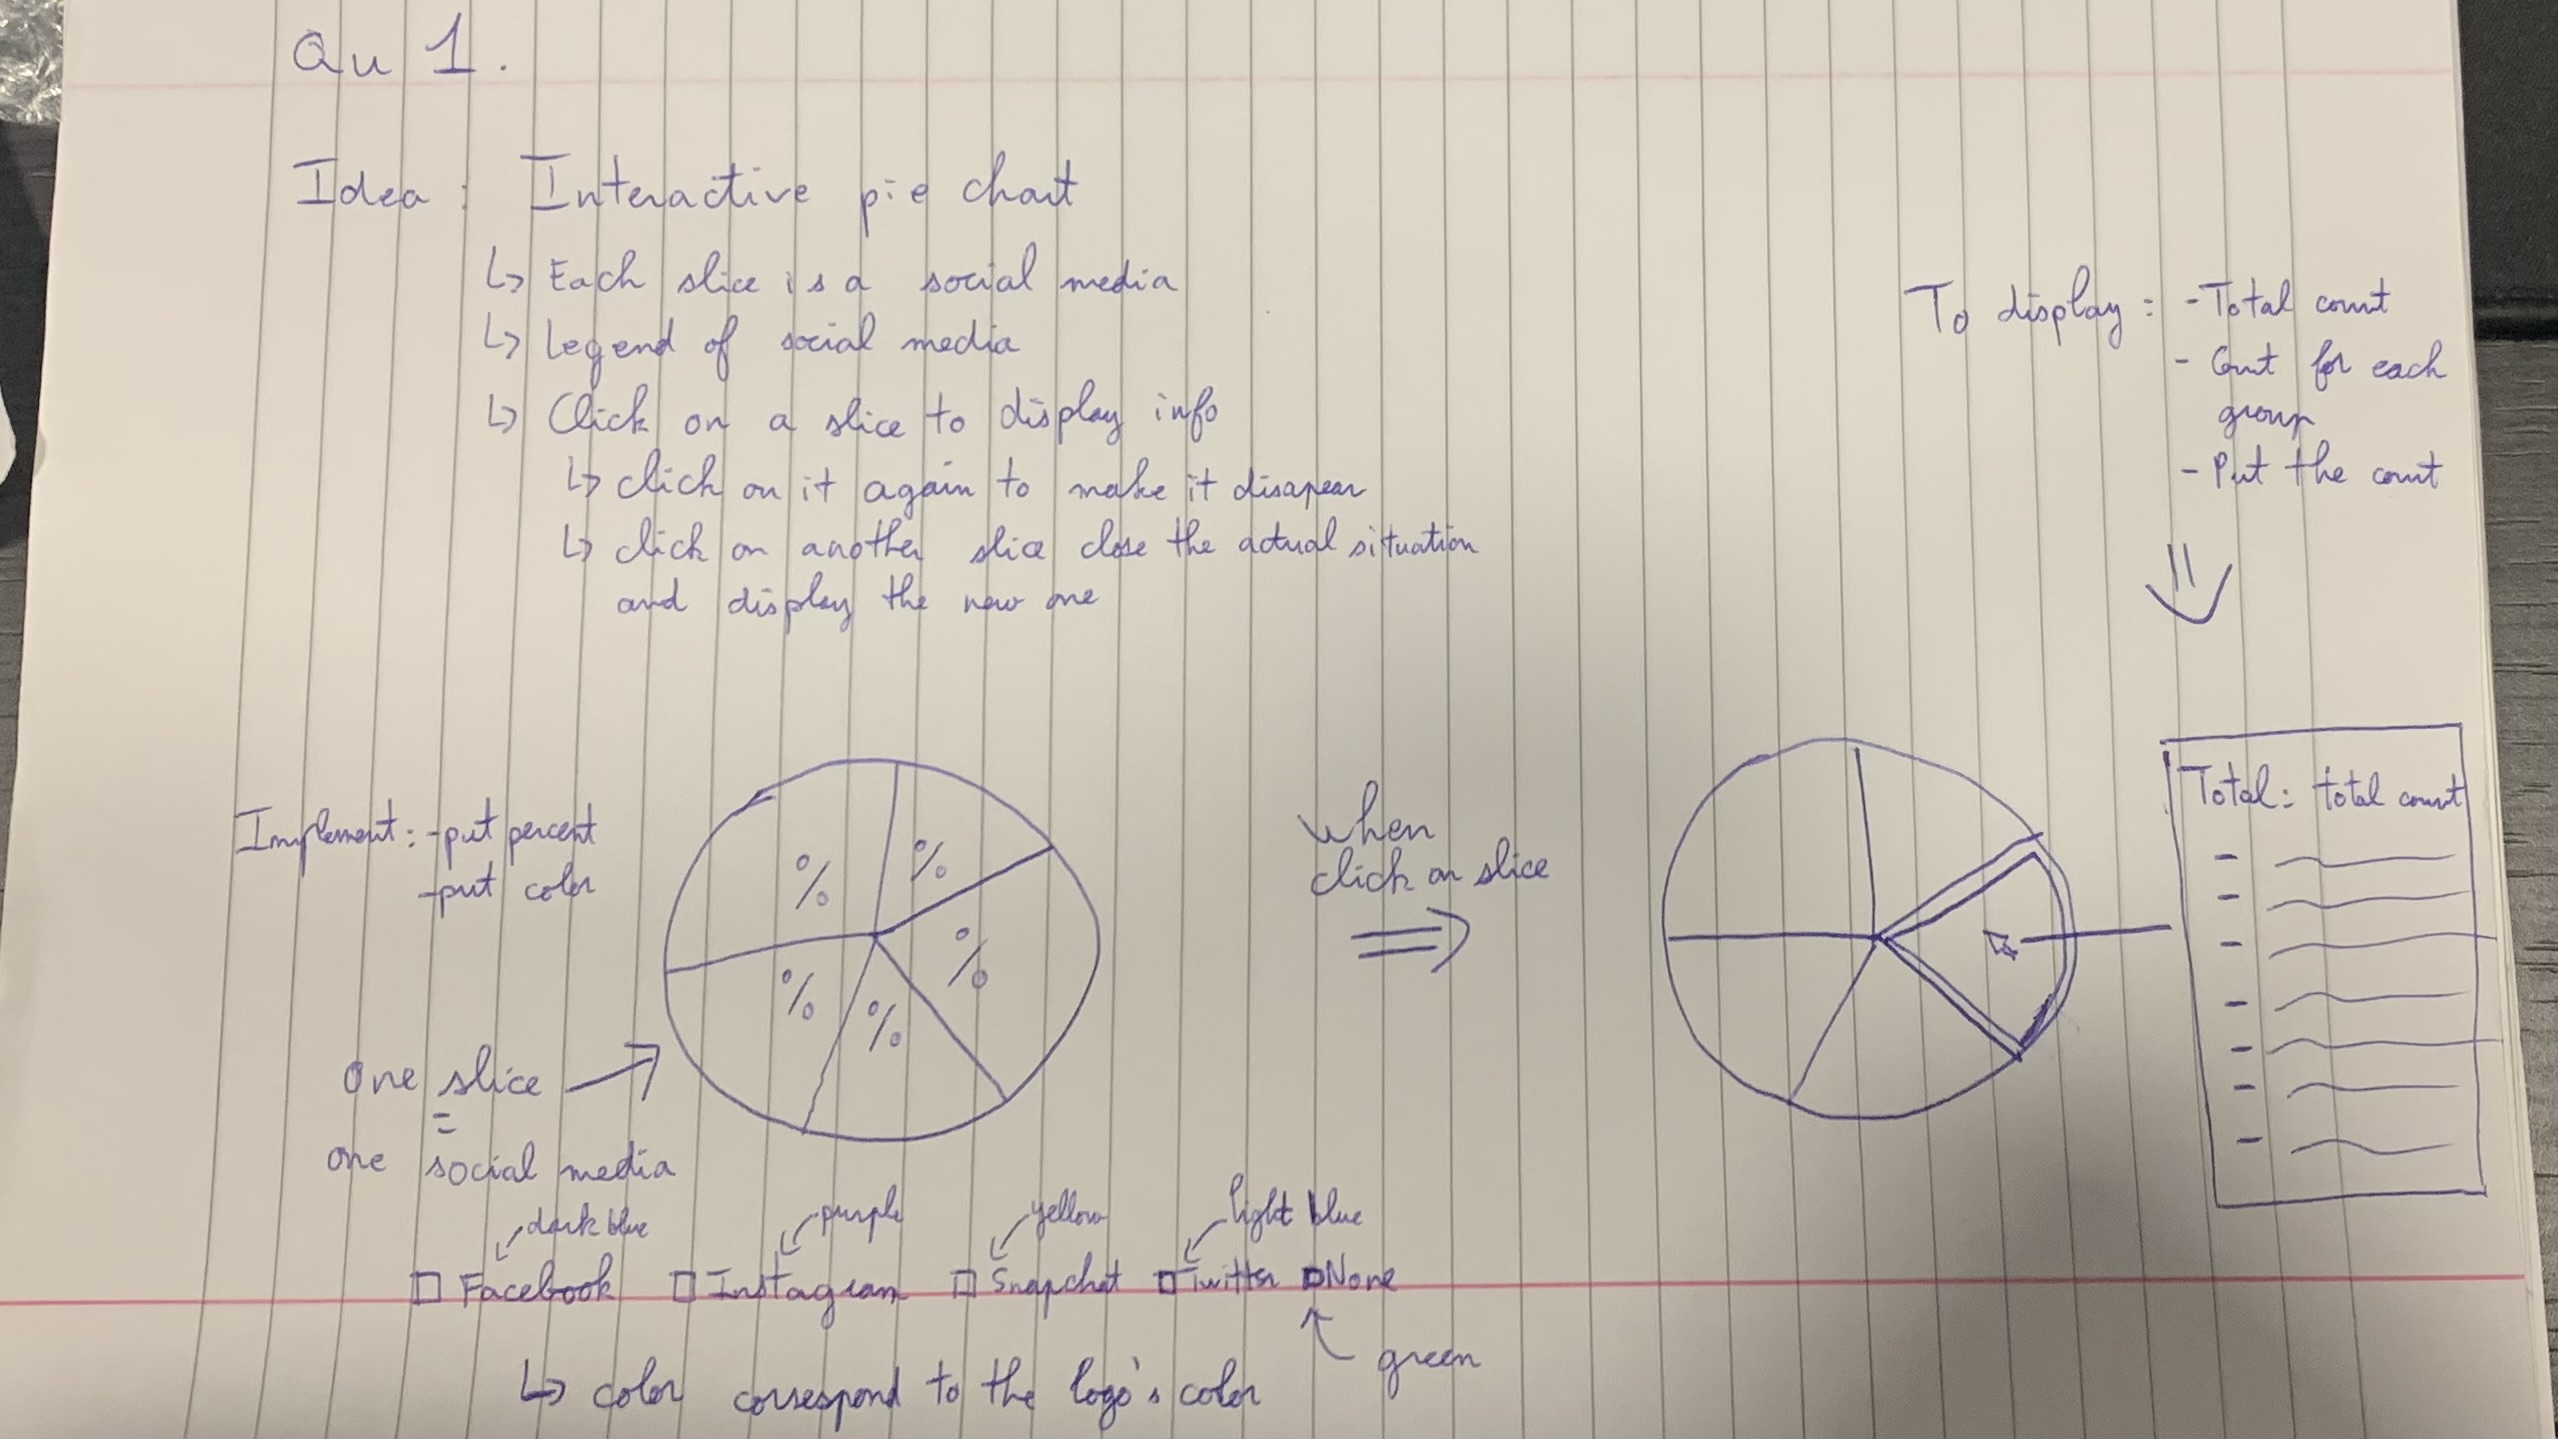 Qu 1.
Idea : Interactive pie chart
↳ Each slice is a social media
↳ legend of social media
↳ Click on a slice to display info
↳ click on it again to make it disapear
↳ click on another slice close the actual situation
and display the new one
To display : - Total count
- Count for each
group
- Put the count
Implement : - put percent
- put color
% %
% % %
one slice
=
one social media
when
click on slice
Total : total count
dark blue purple yellow light blue
Facebook Instagram Snapchat Twitter None
green
↳ color correspond to the logo's color